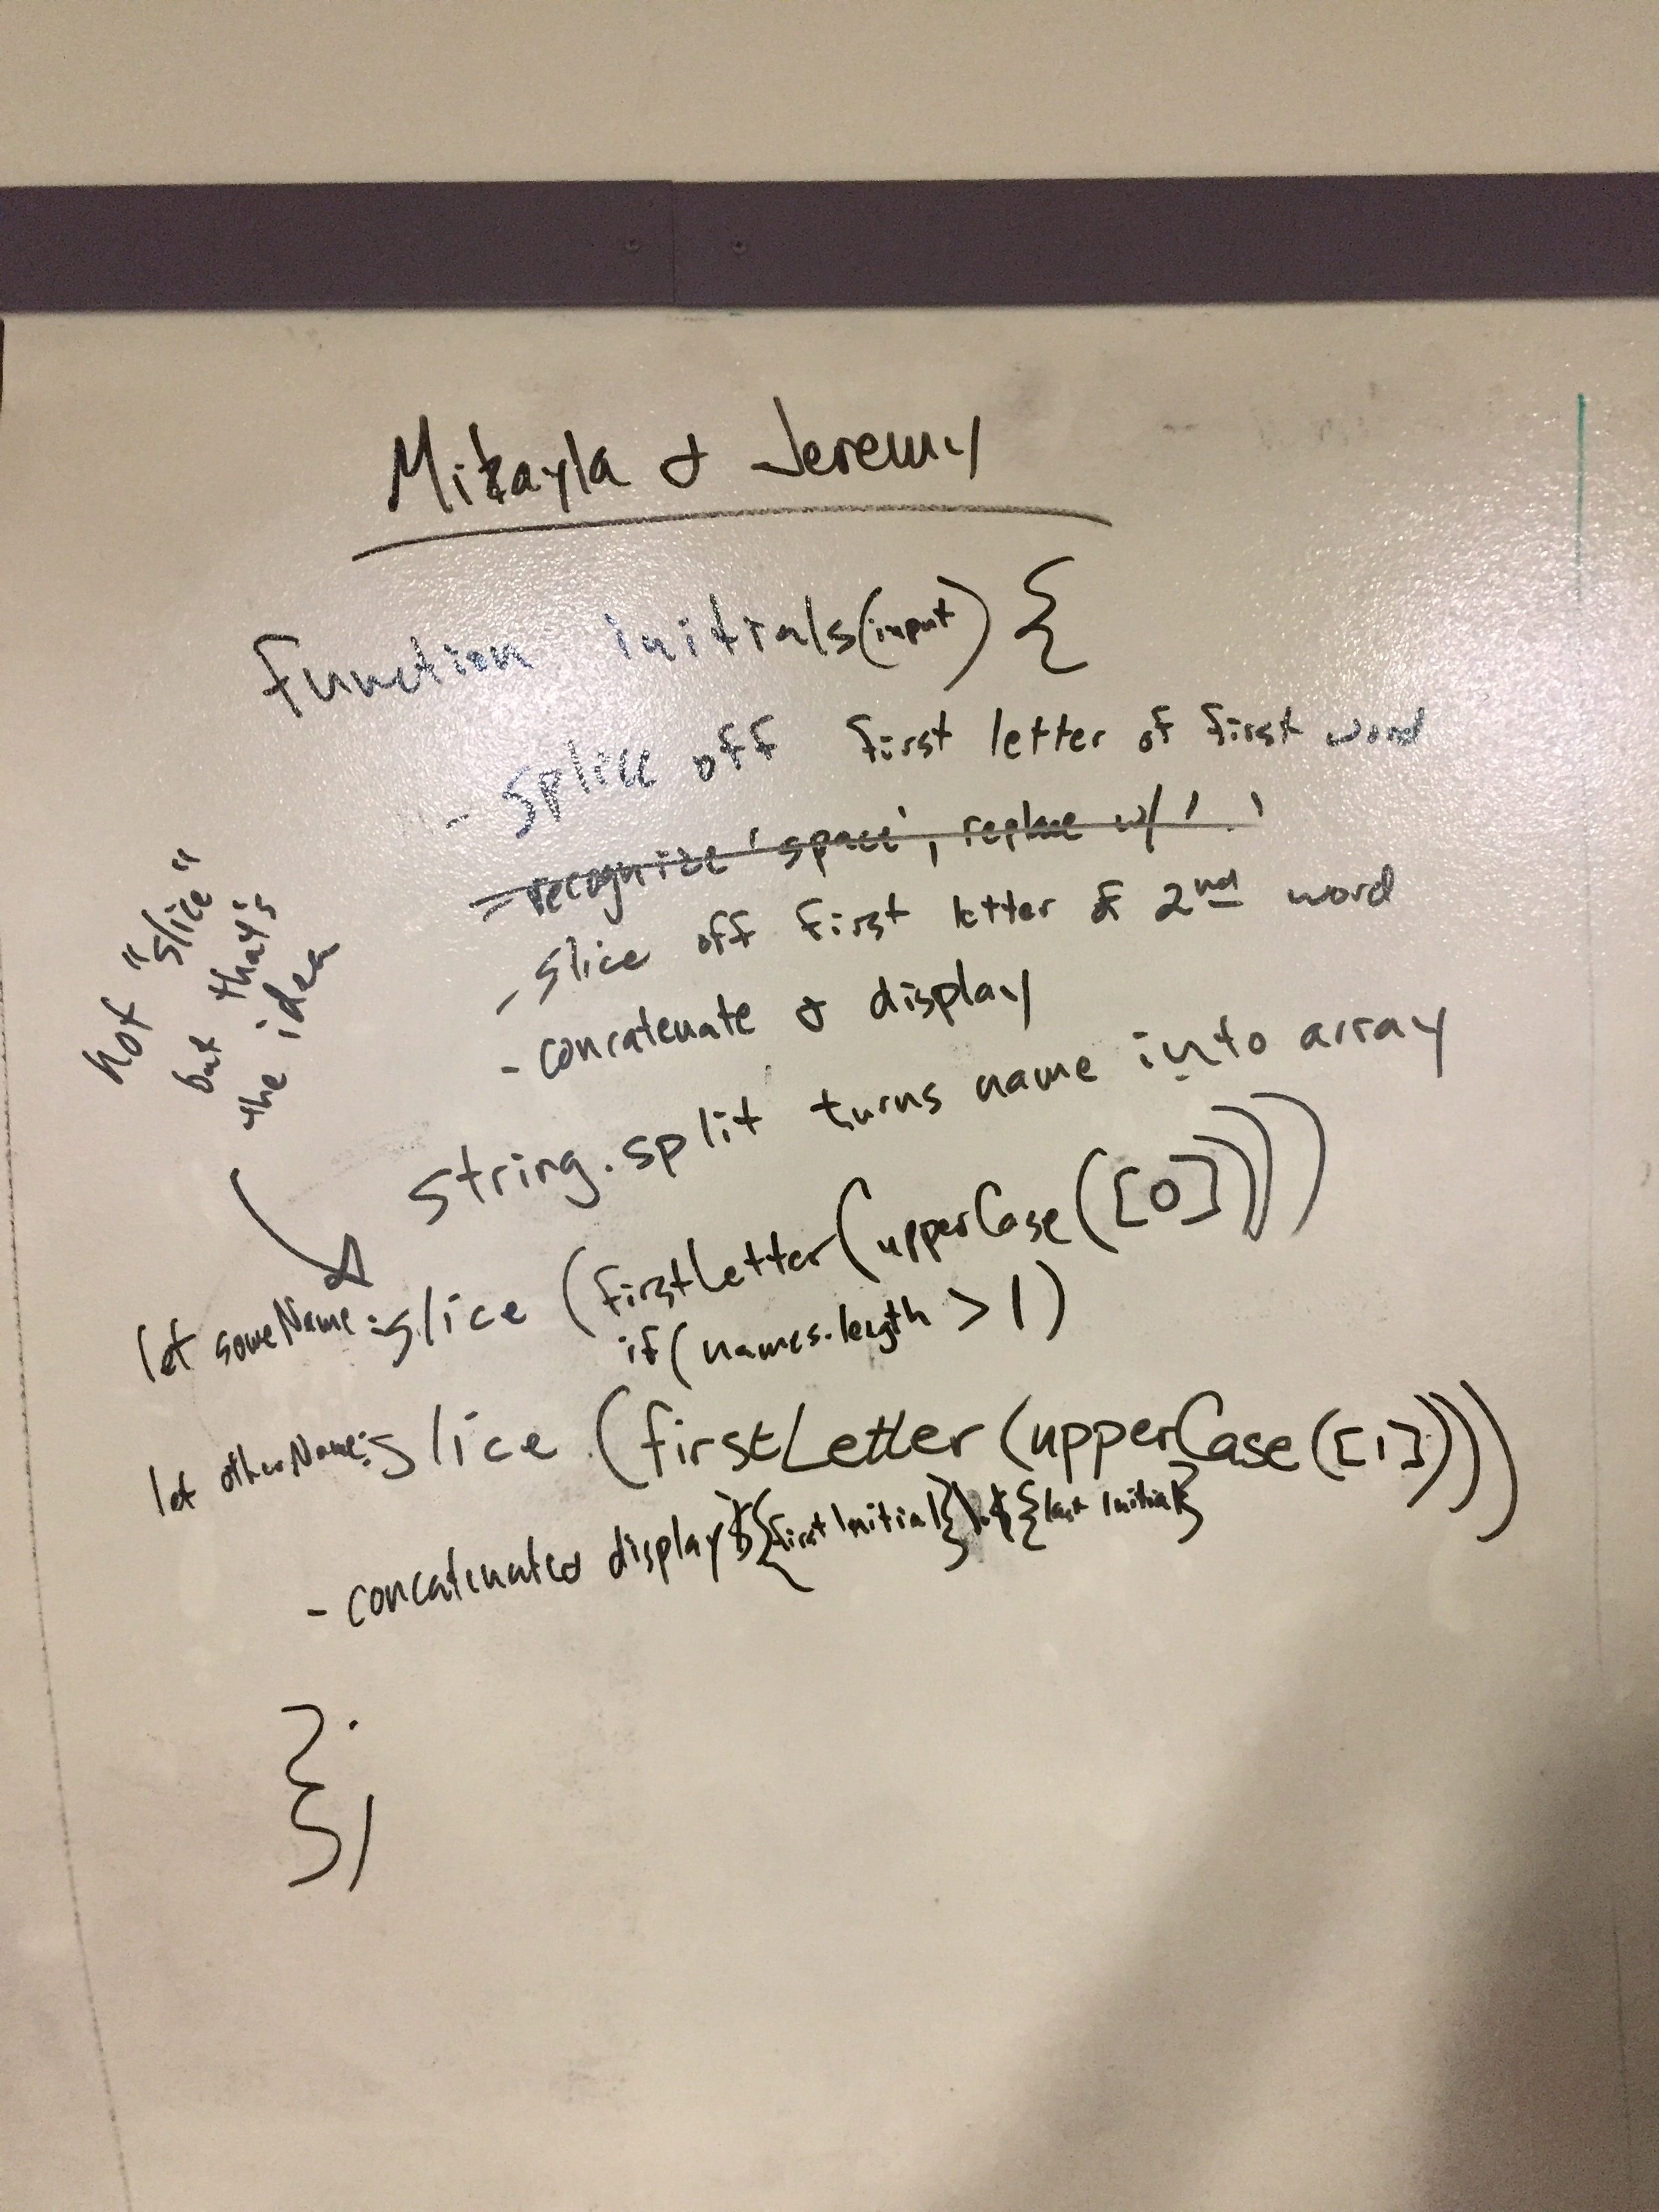 Mikayla & Jeremy
function initials(input) {
- splice off first letter of first word
- recognize 'space', replace w/ '.'
- slice off first letter of 2nd word
- concatenate & display
not "slice"
but that's
the idea
string.split turns name into array
let someName = slice (firstLetter(upperCase([0])))
if(names.length > 1)
let otherName = slice (firstLetter(upperCase([1])))
- concatenate & display ${firstInitial}.${last Initial}
};